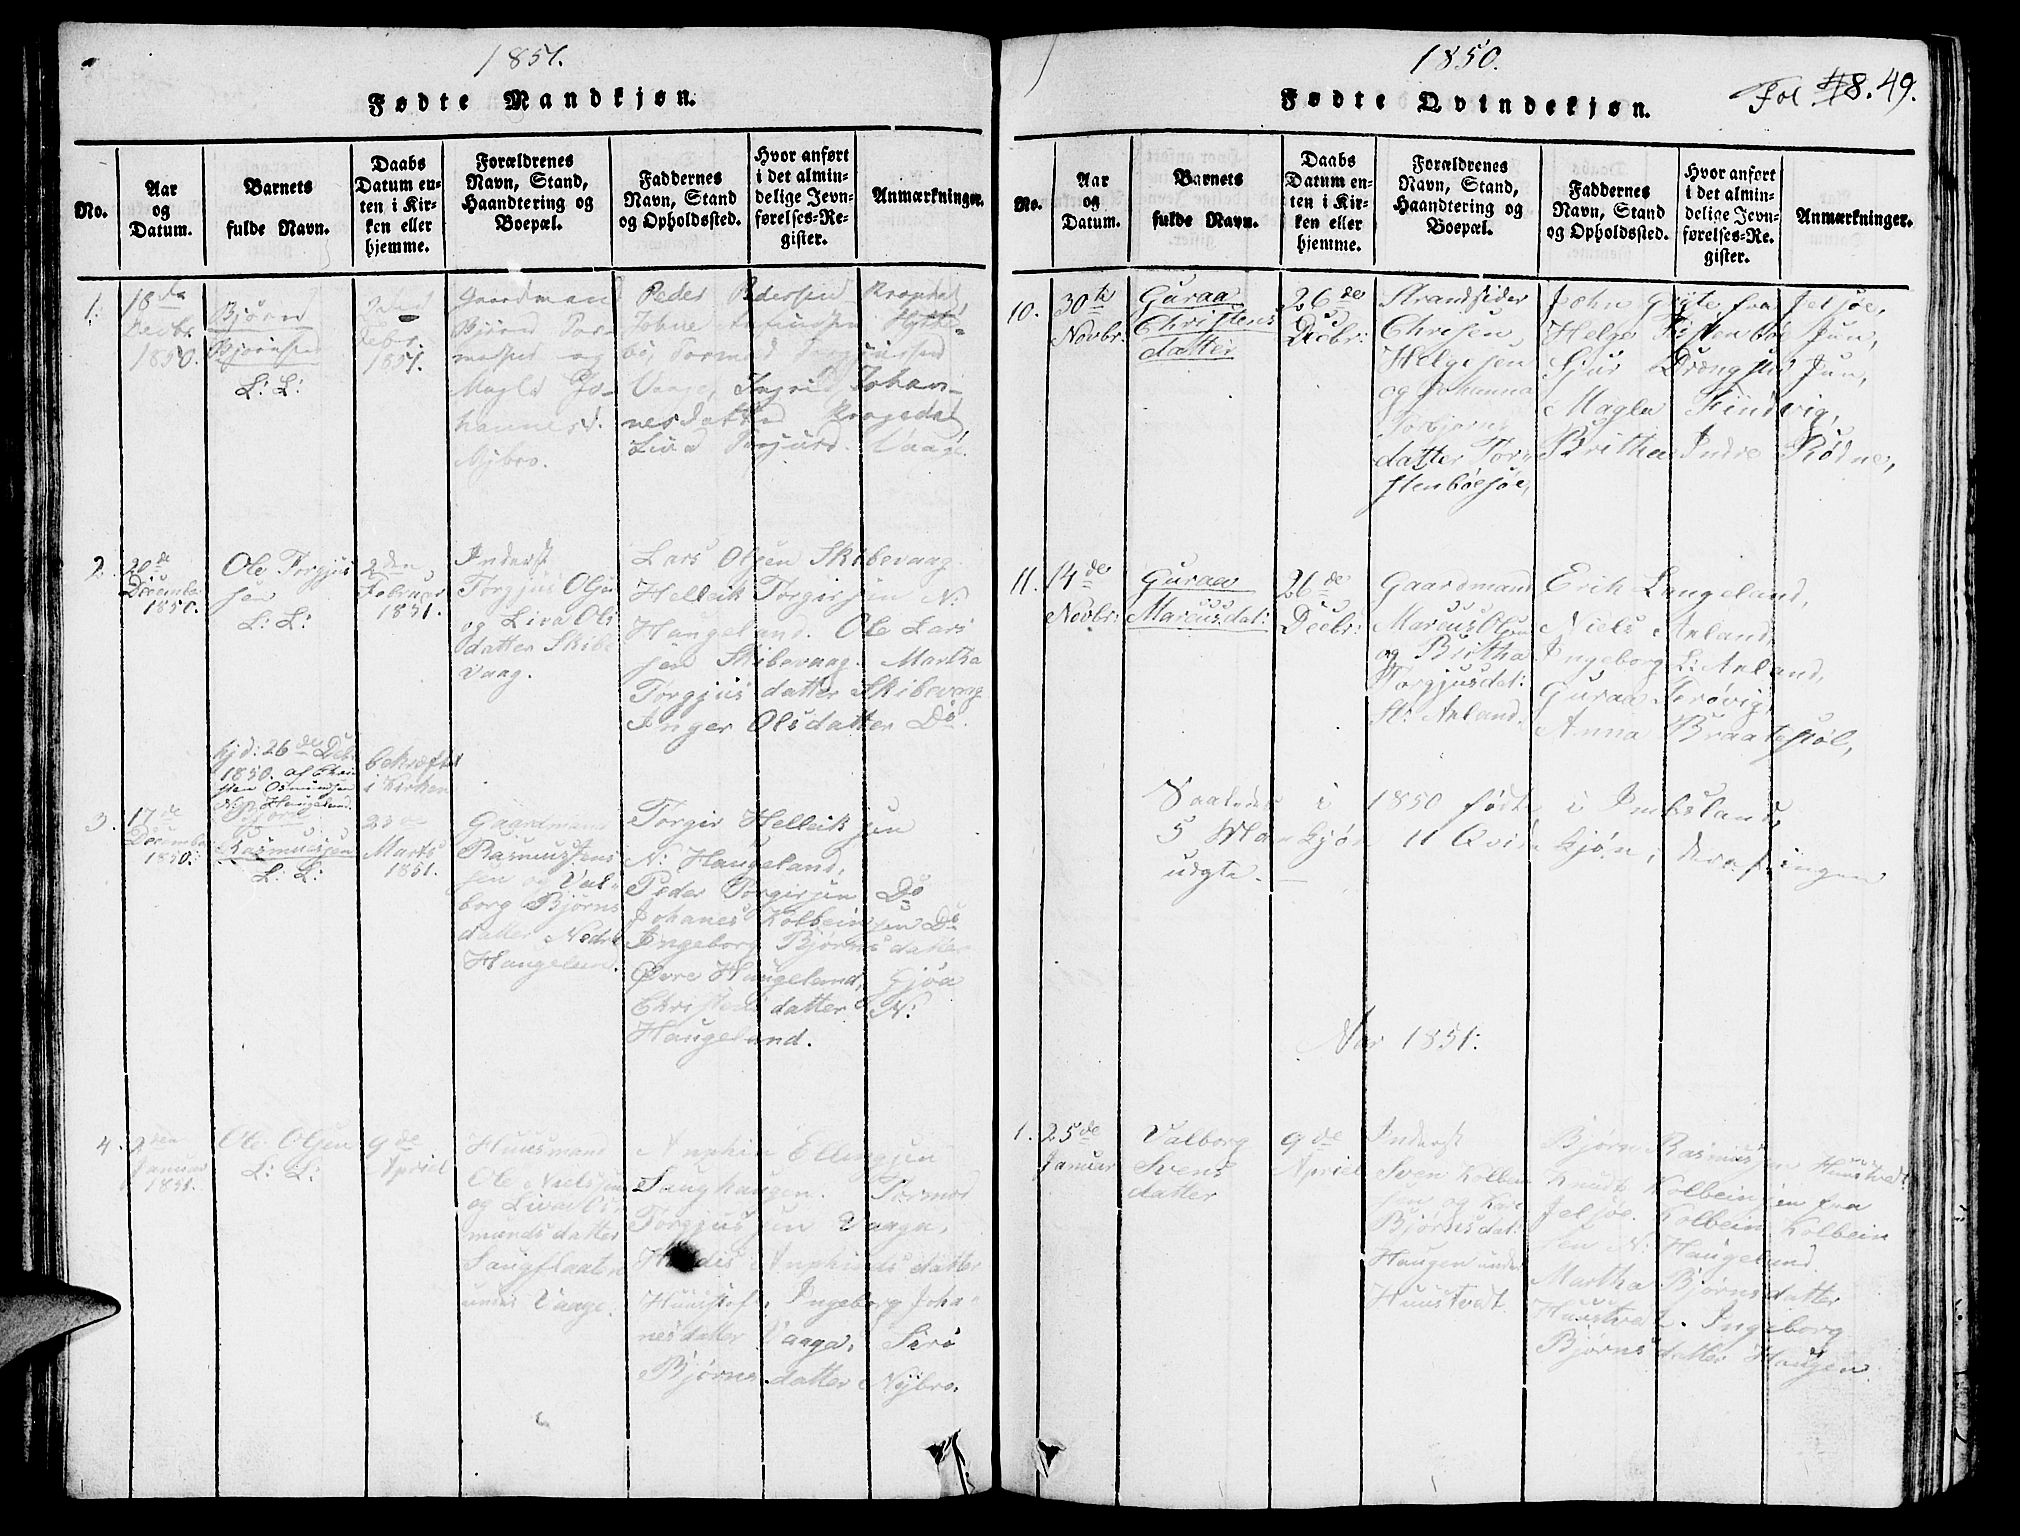 1851.
Fødte Mandkjøn.
No.
Aar
og
Datum.
Barnets
fulde Navn.
Daabs
Datum en-
ten i Kir-
ken eller
hjemme.
Forældrenes
Navn, Stand,
Haandtering og
Boepæl.
Faddernes
Navn, Stand
og Opholdssted.
Hvor anført
i det almin-
delige Jevn-
førelses-Re-
gister.
Anmærkninger.
1.
18de
Decbr.
1850.
Bjørn
Bjørnsen
L: L:
2den
Febr.
1851.
Gaardmand
Bjørn Tor-
modsen og
Magla Jo-
hannesd.
Nybro.
Peder Pedersen
Vaage, Ingrid Johan-
nesdatter
Liva Torjusd. Vaage.
2.
20de
December
1850.
Ole Torgjus
sen
L: L:
2den
Februar
1851.
Inderst
Torgjus Olsen
og Liva Ols
datter Skibe
vaag.
Lars Olsen Skibevaag
Helleik Torgirsen N:
Haugeland. Ole Lars
sen Skibevaag. Martha
Torgjusdatter Skibevaag
Inger Olsdatter Do.
hjd: 26de Deb
1850. af Chri
sten Osmundsen
N: Haugeland.
bekræftet
i Kirken
3.
17de
December
1850.
Bjørn
Rasmussen
L: L:
23de
Marts
1851.
Gaardmand
Rasmus Stens
sen og Val-
borg Bjørns
datter Nedre
Haugeland.
Torgir Helleiksen
N: Haugeland,
Peder Torgirsen Do
Johanes Kolbeinsen Do
Ingeborg Bjørnsdatter
Øvre Haugeland, Gjøa
Christensdatter N:
Haugeland.
4.
2den
Januar
1851.
Ole Olsen
L: L:
9de
Apriel
Huusmand
Ole Nielsen
og Liva Os-
mundsdatter
Sangflaaten
under Vaage.
Anphin Ellingsen
Sanghaugen. Tormod
Torgjussen Vaaga,
Anphindsdatter
Ingeborg Joha-
nesdatter Vaaga, Siri
Bjørnsdatter Nybro.
1850.
Fol 48. 49.
Fødte Qvindekjøn.
No.
Aar
og
Datum.
Barnets
fulde Navn.
Daabs
Datum en-
ten i Kir-
ken eller
hjemme.
Forældrenes
Navn, Stand,
Haandtering og
Boepæl.
Faddernes
Navn, Stand
og Opholdssted.
Hvor anført
i det almin-
delige Jevn-
førelses-Re-
gister.
Anmærkninger.
10.
30te
Novbr:
Guraa
Christens
datter
26de
Decbr:
Strandsider
Christen
Helgesen
og Johanna
Torbjørns
datter Tor-
stenbøesøe,
John Gryte fra Jelsøe,
Helge Fistenbøe Jun,
Sjur Drængstig Jun,
Magla Findvig,
Britha Indre Rødne,
11.
14de
Novbr:
Guraa
Marcusdat:
26de
Decbr:
Gaardmand
Marcus Olsen
og Birtha
Torgjusdat:
St: Aaland.
Erik Langeland,
Niels Aaland,
Ingeborg L: Aaland,
Guraa Trøvig,
Anna Braatestøl,
Saaledes i 1850 fødte i Imbsland,
5 Mankjøn 11 Qvindekjøn, deraf ingen
uægte. —
Aar 1851:
1.
25de
Januar
Valborg
Svens
datter
9de
Apriel
Inderst
Sven Kolben
sen og Kari
Bjørnsdat:
Haugen under
Huustvedt.
Bjørn Rasmussen Huustvedt.
Knudt Kolbeinsen fra
Jelsøe. Kolbein Kolbein
sen N: Haugeland.
Martha Bjørnsdatter
Huustvedt. Ingeborg
Bjørnsdatter Haugen.